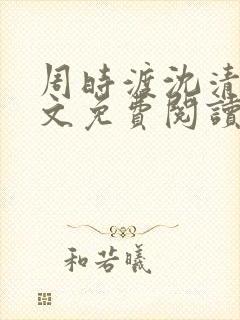 周時渡沈清
文免費閱讀
和若曦